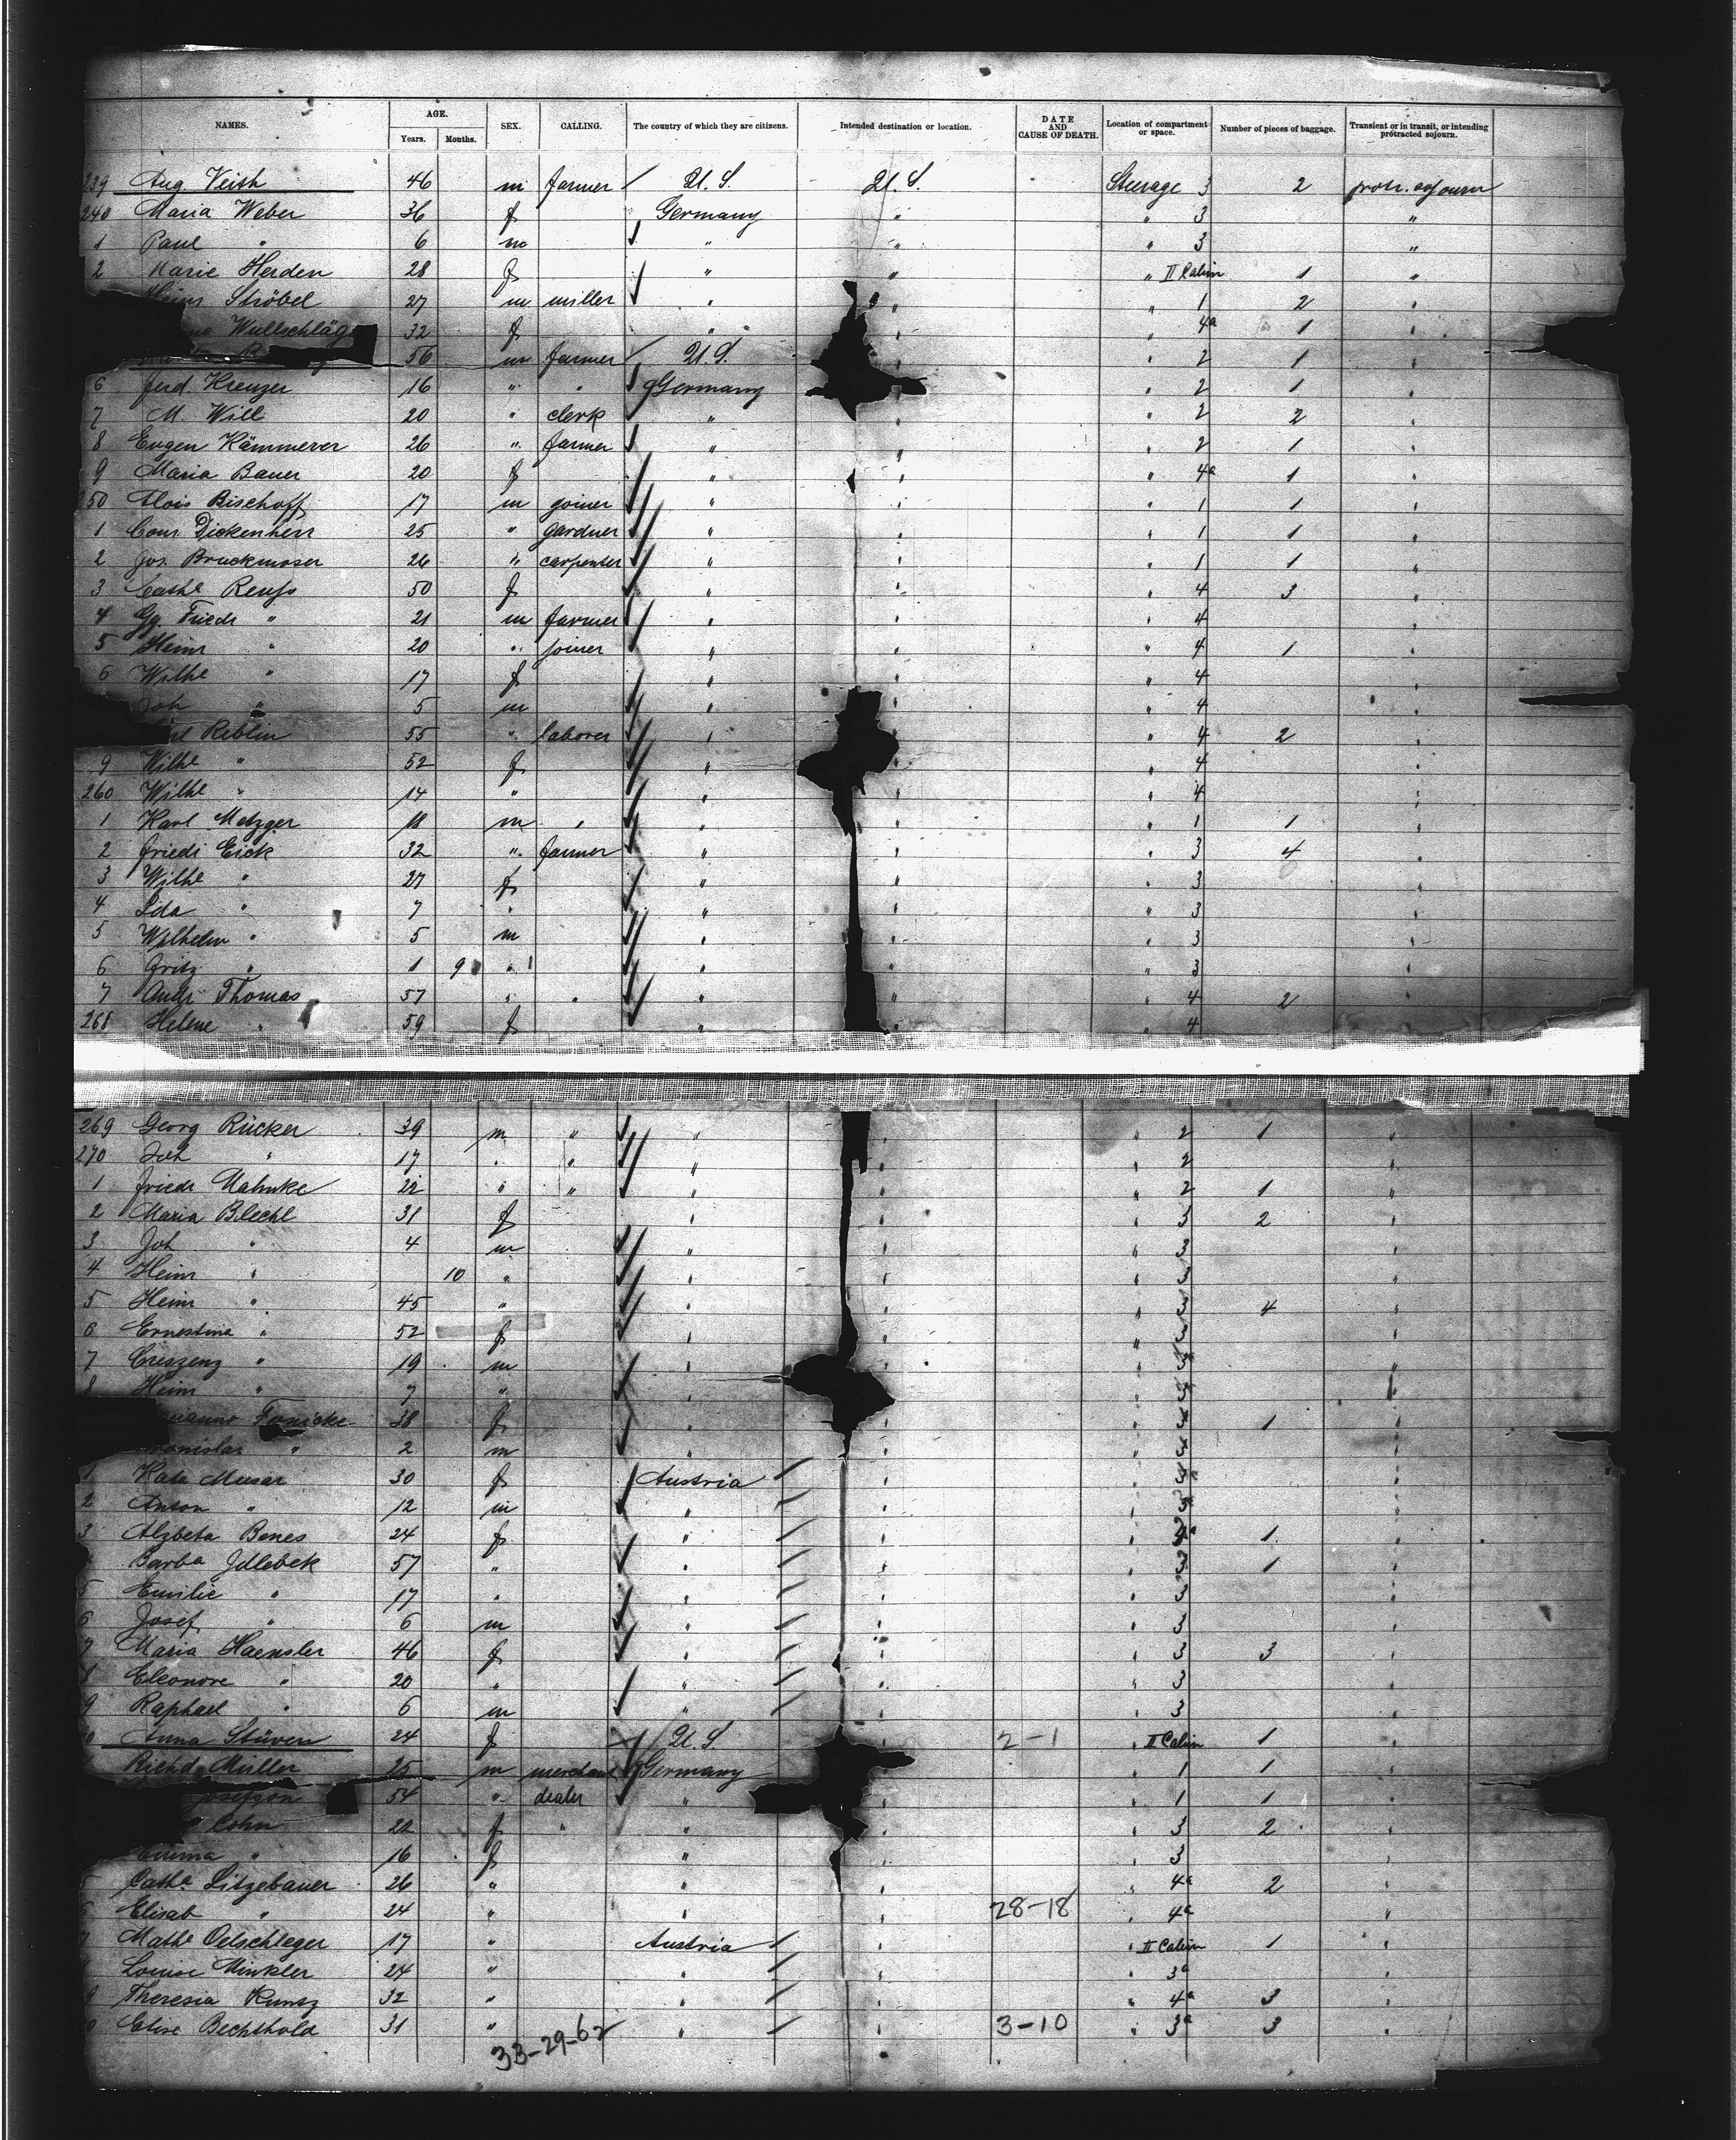 NAMES. AGE. Years. Months. SEX. CALLING. The country of which they are citizens. Intended destination or location. DATE AND CAUSE OF DEATH. Location of compartment or space. Number of pieces of baggage. Transient or in transit, or intending protracted sojourn.
239 Aug. Veith 46 m farmer U. S. U. S. Steerage 3 2 protr. sojourn
240 Maria Weber 36 f Germany " " 3 "
1 Paul " 6 m " " " 3 "
2 Marie Herden 28 f " " " II Cabin 1 "
Ströbel 27 m miller " " " 1 2 "
Wullschläg 32 f " " 4a 1 "
56 m farmer U. S. " 2 1 "
6 Ferd. Kreuzer 16 " " Germany " " 2 1 "
7 M. Will 20 " clerk " " " 2 2 "
8 Eugen Kämmerer 26 " farmer " " " 2 1 "
9 Maria Bauer 20 f " " " 4a 1 "
250 Alois Bischoff 17 m joiner " " " 1 1 "
1 Conr. Dickenherr 25 " gardner " " " 1 1 "
2 Jos. Bruckmoser 26 " carpenter " " " 1 1 "
3 Cathe Reufs 50 f " " " 4 3 "
4 Gg. Friedr " 21 m farmer " " " 4 "
5 Heinr " 20 " joiner " " " 4 1 "
6 Wilhe " 17 f " " " 4 "
Joh " 5 m " " 4 "
Reblin 55 " laborer " " 4 2 "
9 Wilhe " 52 f " " " 4 "
260 Wilhe " 14 " " " " 4 "
1 Karl Metzger 18 m " " " 1 1 "
2 Friedr Eick 32 " farmer " " " 3 4 "
3 Wilhe " 27 f " " " 3 "
4 Ida " 7 " " " " 3 "
5 Wilhelm " 5 m " " " 3 "
6 Fritz " 1 9 " " " " 3 "
7 Andr Thomas 57 " " " " " 4 2 "
268 Helene " 59 f " " " 4
269 Georg Rücker 39 m " " " " 2 1 "
270 Joh " 17 " " " " " 2 "
1 Friedr Mahnke 22 " " " " " 2 1 "
2 Maria Blechl 31 f " " " 3 2 "
3 Joh " 4 m " " " 3 "
4 Heinr " 10 " " " " 3 "
5 Heinr " 45 " " " " 3 4 "
6 Ernestina " 52 f " " " 3 "
7 Creszenz " 19 m " " 3 "
8 Heinr " 7 " " " 3 "
Fonicke 38 f " " " 3 1 "
" 2 m " " " 3 "
1 Kata Musar 30 f Austria " " 3a "
2 Anton " 12 m " " " 3a "
3 Alzbeta Benes 24 f " " " 4a 1 "
Barba Jdlebek 57 " " " " 3 1 "
5 Emilie " 17 " " " " 3 "
6 Josef " 6 m " " " 3 "
7 Maria Haensler 46 f " " " 3 3 "
8 Eleonore " 20 " " " " 3 "
9 Raphael " 6 m " " " 3 "
0 Anna Stüven 24 f U. S. 2-1 " II Cabin 1 "
Richd Müller 25 m merchant Germany " " 1 1 "
Josefson 54 " dealer " " " 1 1 "
Cohn 22 f " " " " 3 2 "
Emma " 16 f " " " 3 "
5 Catha Litzebauer 26 " " " " 4a 2 "
6 Elisab " 24 " " " 28-18 " 4a "
7 Mathe Oelschleger 17 " Austria " " II Cabin 1 "
Louise Winkler 24 " " " " 3a "
9 Theresia Kuntz 32 " " " " 4a 3 "
0 Elise Bechthold 31 " " " 3-10 " 3a 3 "
33-29-62